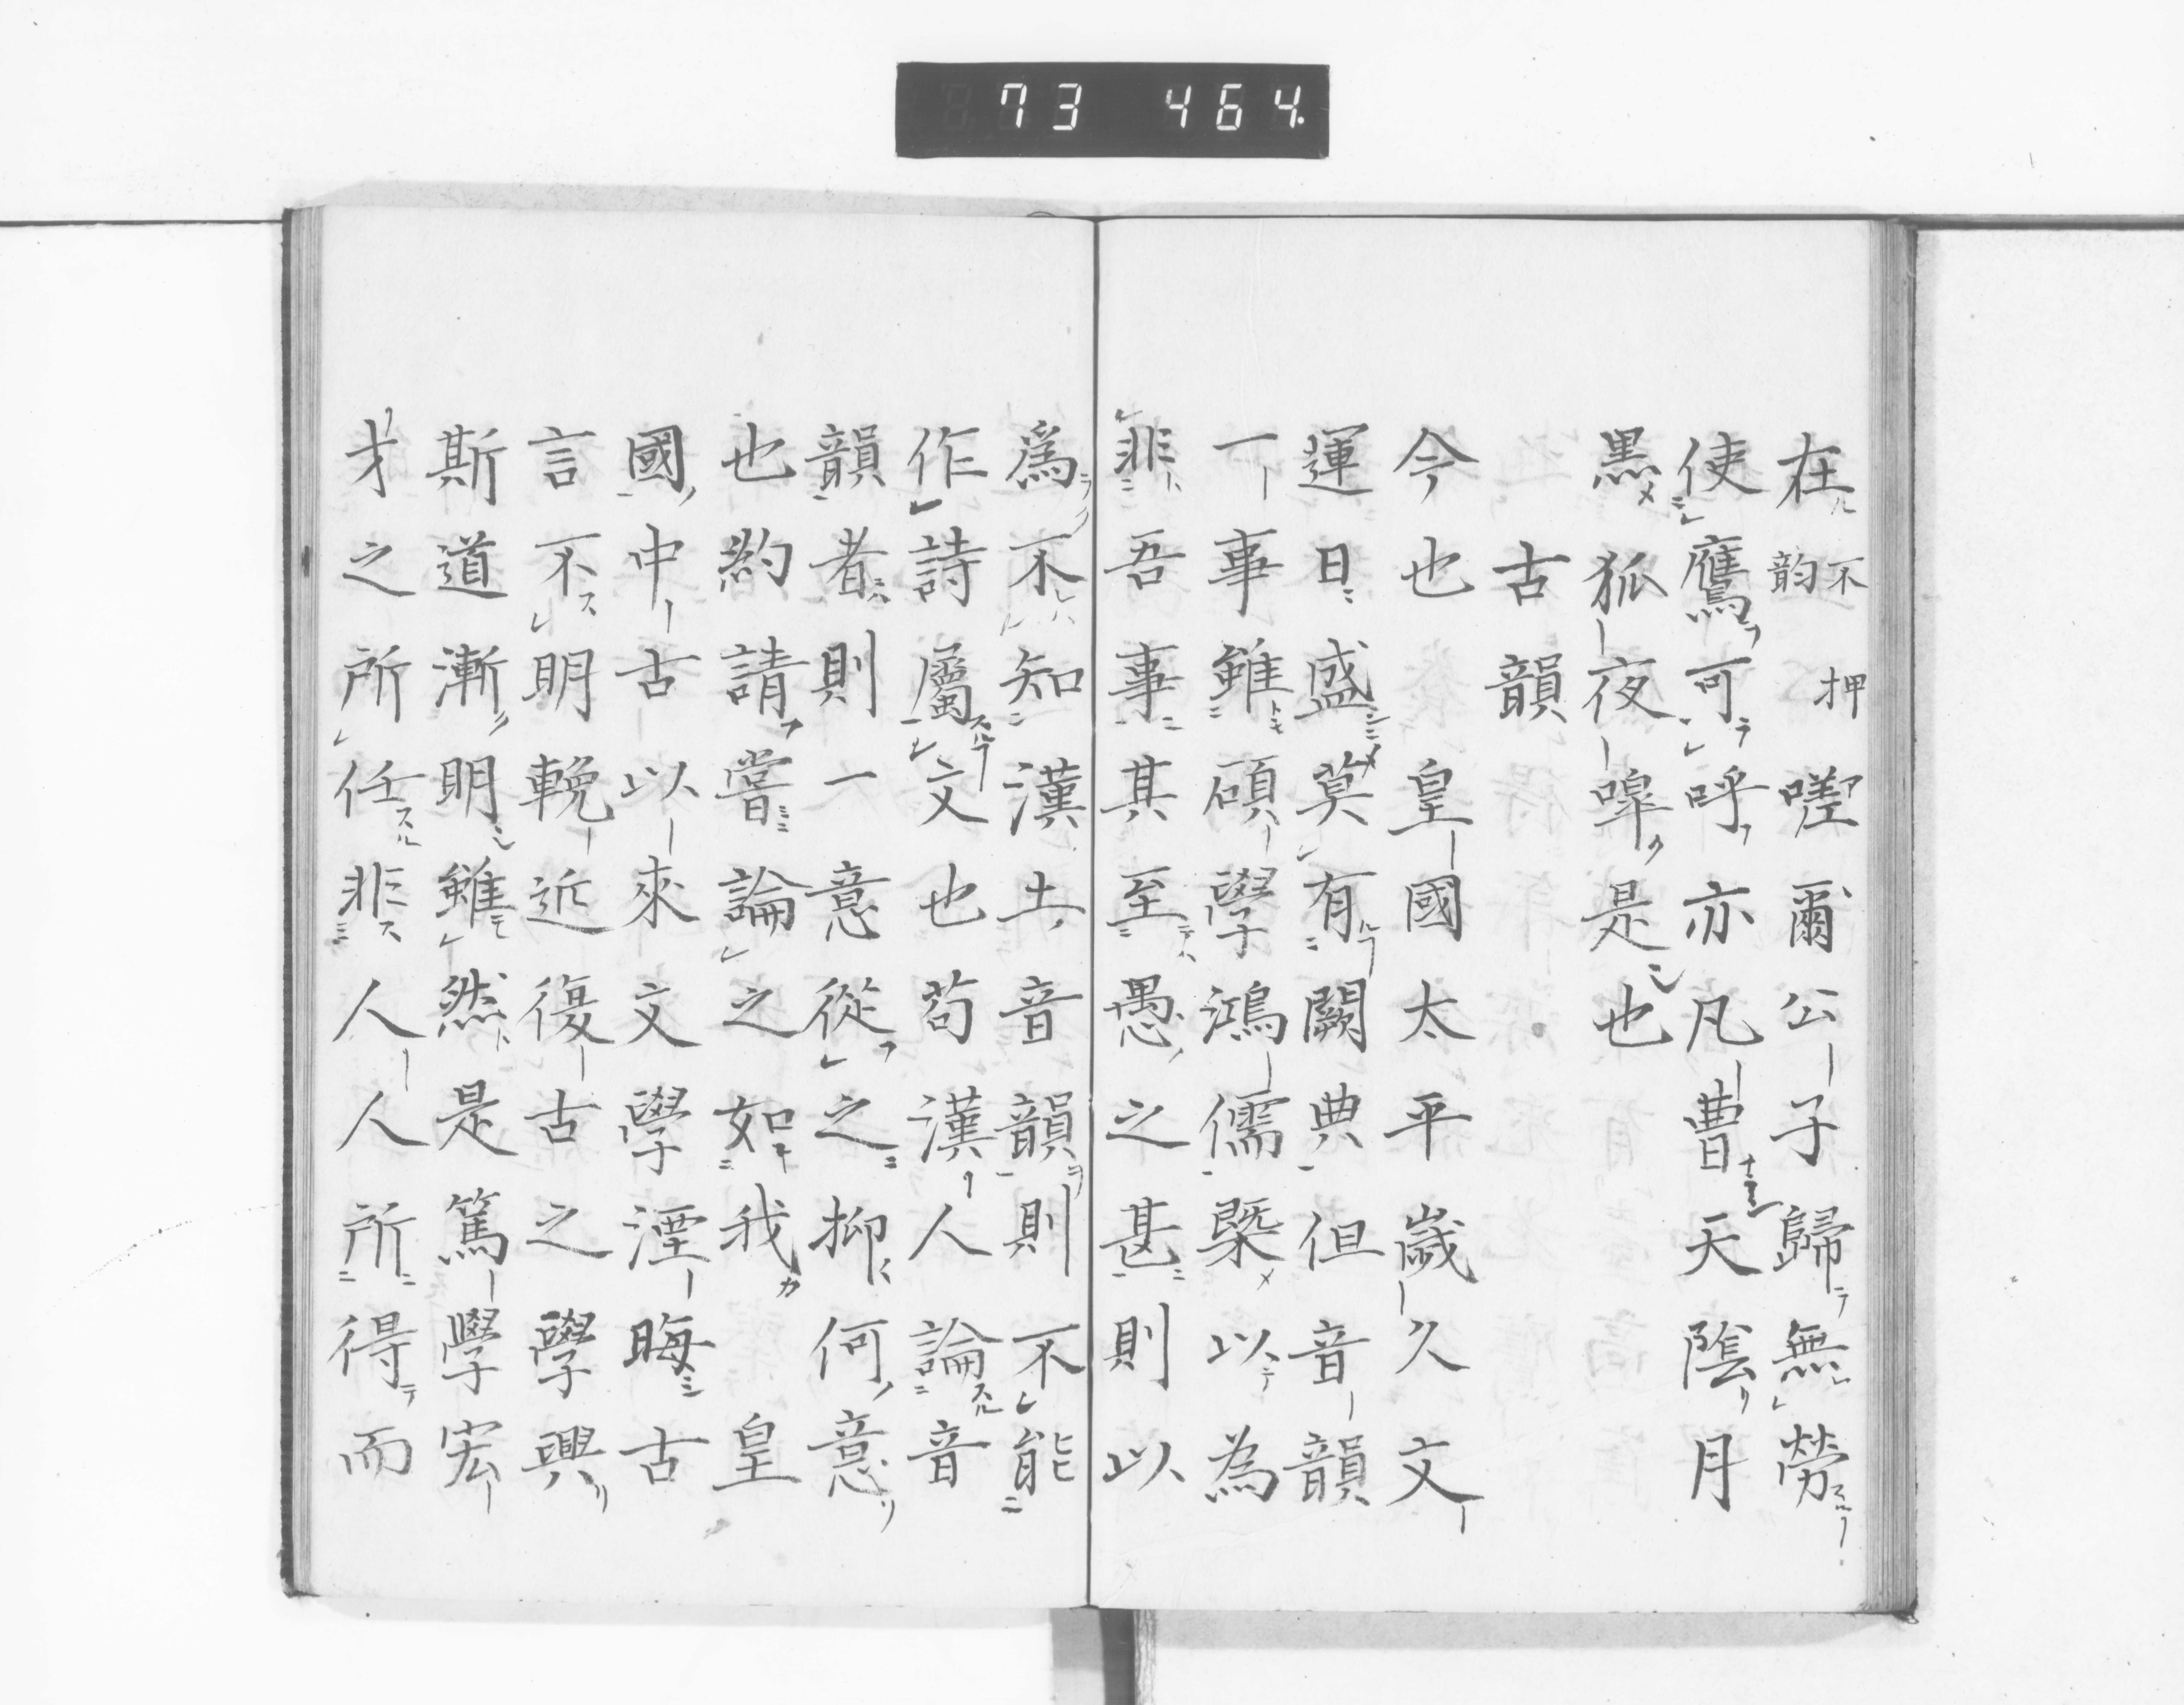 73 464.
在不押韵嗟爾公子歸無勞
使鷹可呼亦凡曹天陰月
黒狐夜嘷是也
古韻
今也皇國太平歲久文
運日盛莫有闕典但音韻
一事雖碩學鴻儒槩以為
非吾事其至愚之甚則以
爲不知漢土音韻則不能
作詩屬文也苟漢人論音
韻者則一意從之抑何意
也約請嘗論之如我皇
國中古以來文學湮晦古
言不明輓近復古之學興
斯道漸明雖然是篤學宏
才之所任非人人所得而